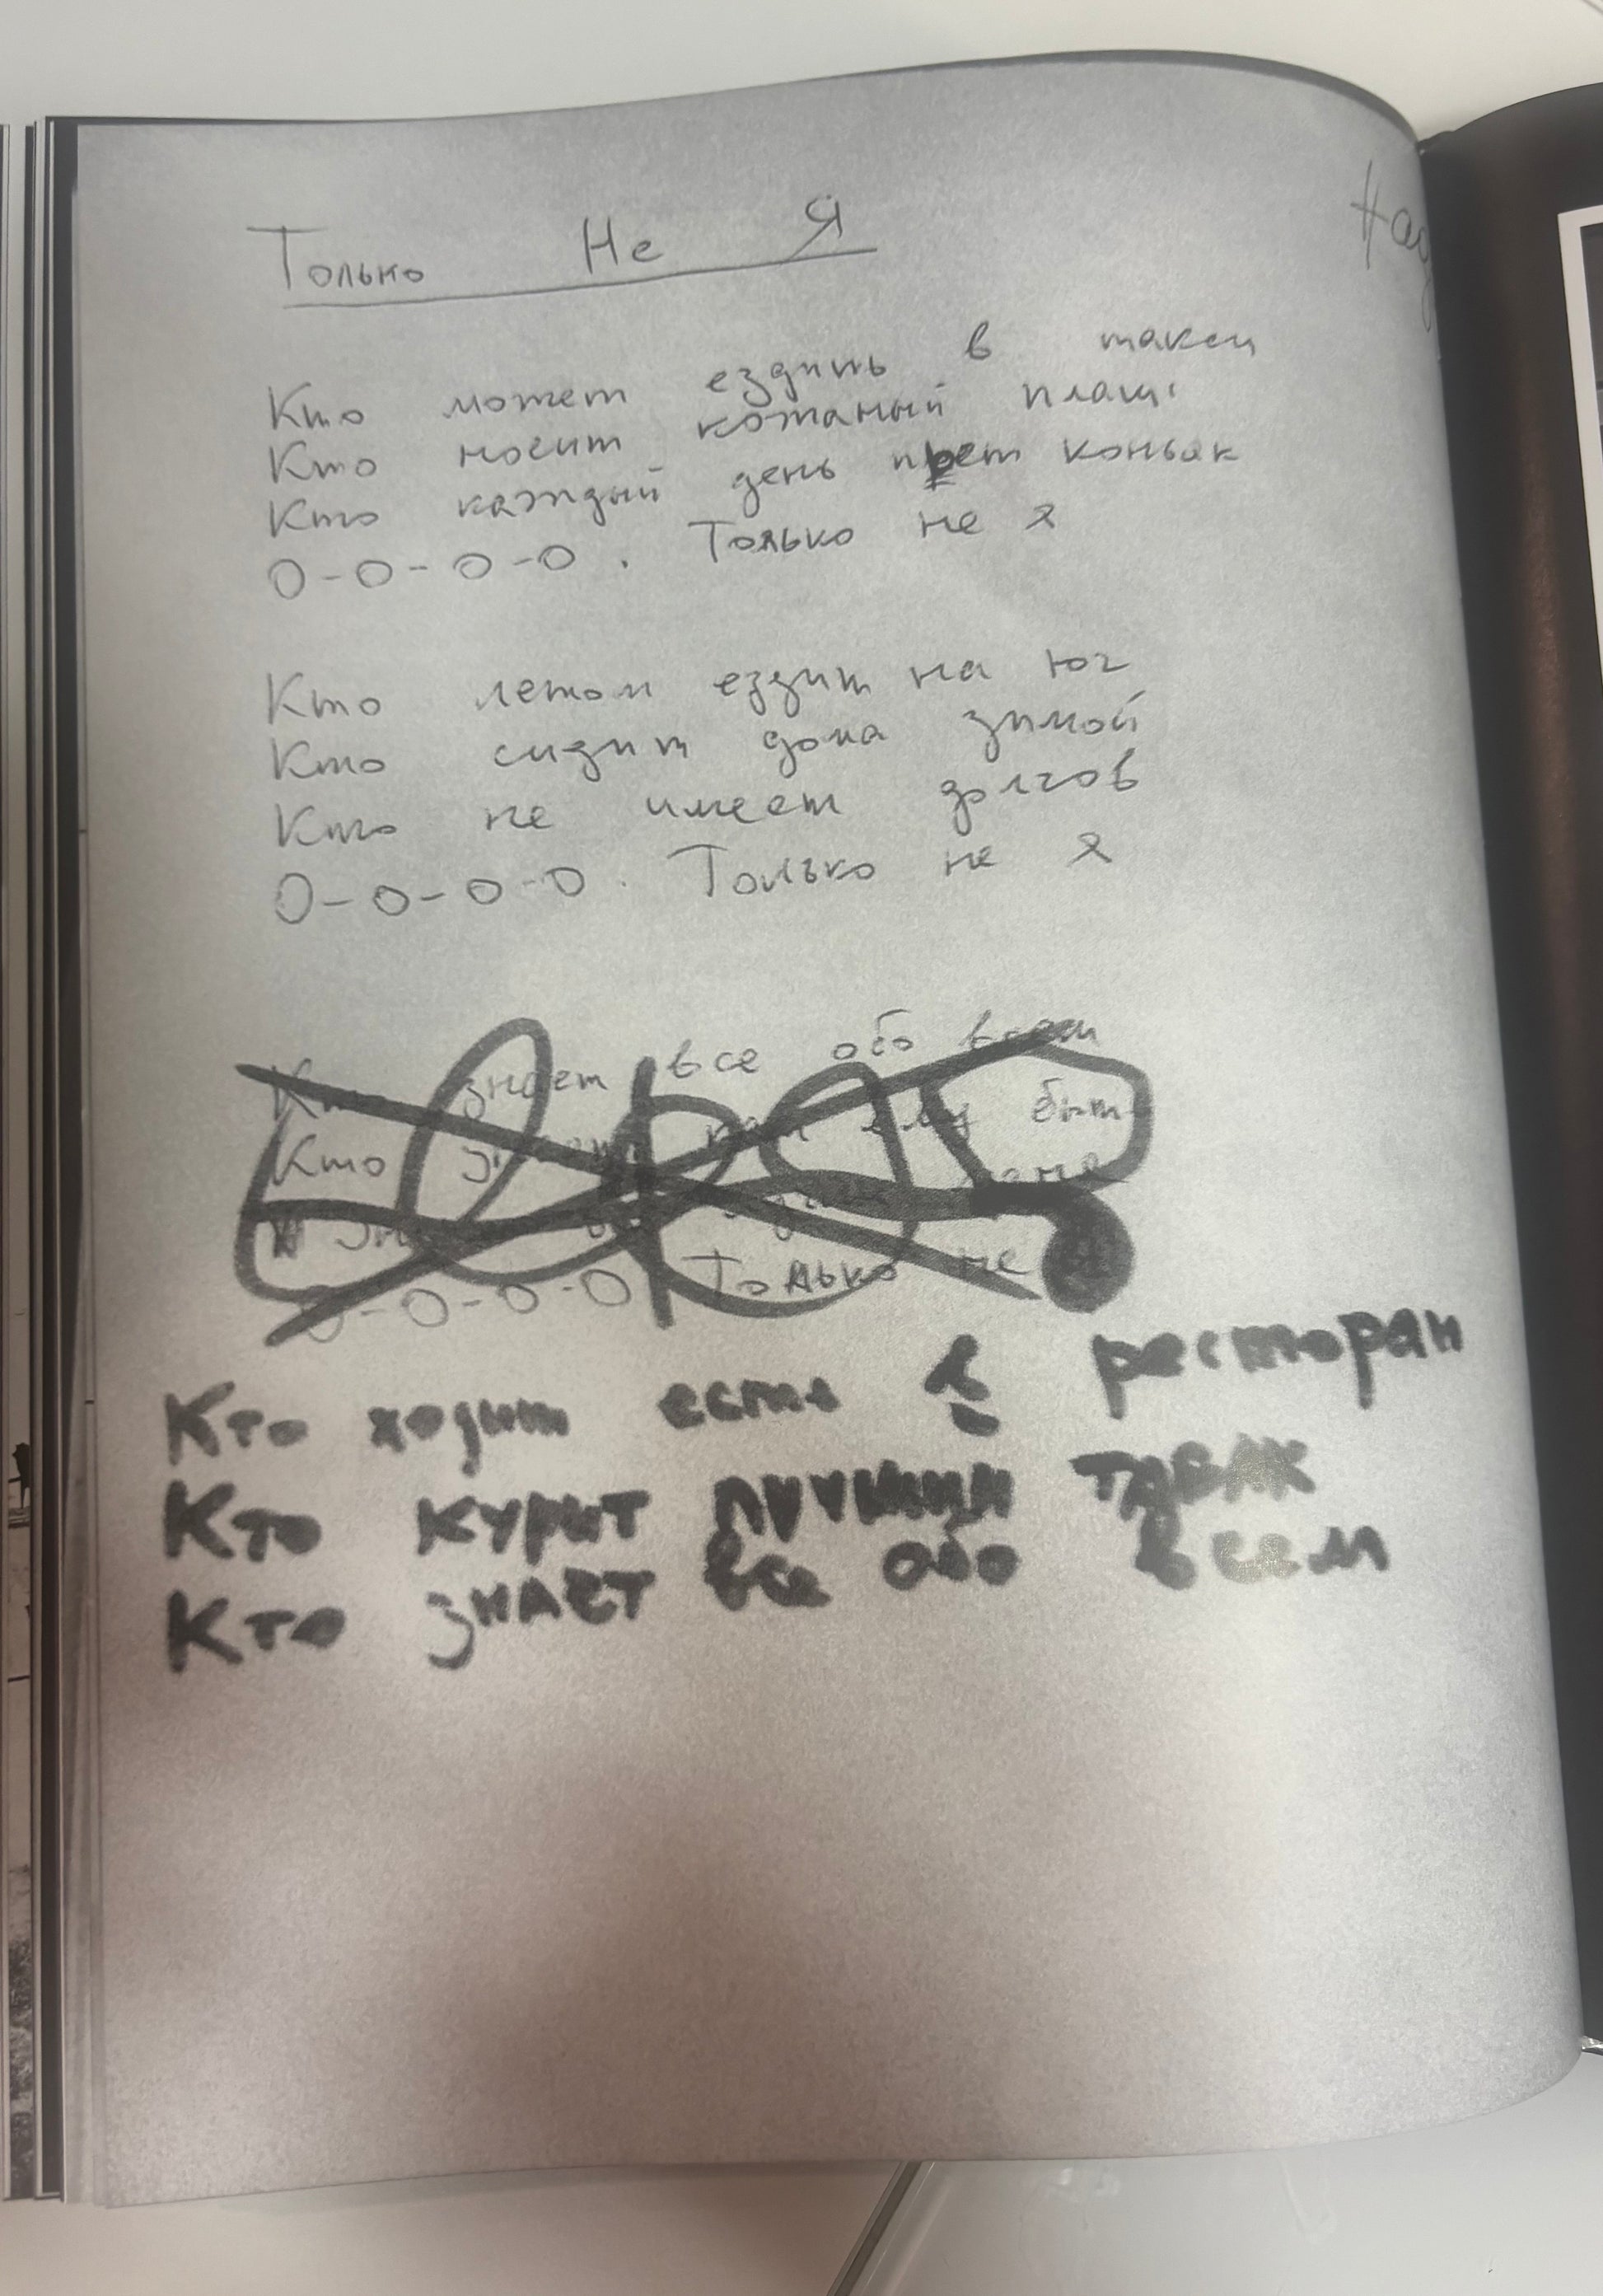 Только Не Я
Кто может ездить в такси
Кто носит кожаный плащ
Кто каждый день пьет коньяк
О-О-О-О. Только не я
Кто летом ездит на юг
Кто сидит дома зимой
Кто не имеет долгов
О-О-О-О. Только не я
Кто знает все обо всем
Кто как ему быть
О-О-О-О Только не
Кто ходит есть в ресторан
Кто курит лучший табак
Кто знает все обо всем